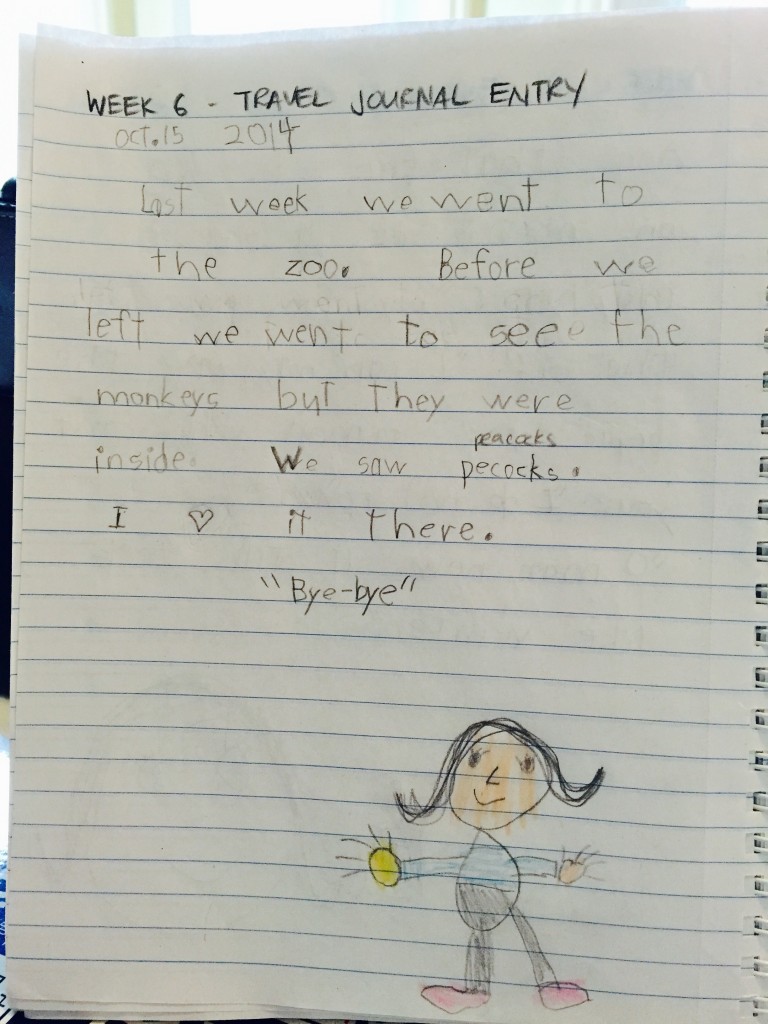 WEEK 6 - TRAVEL JOURNAL ENTRY
OCT.15 2014
Last week we went to
the zoo. Before we
left we went to see the
monkeys but they were
inside. We saw peacocks
pecocks.
I ♡ it there.
"Bye-bye"